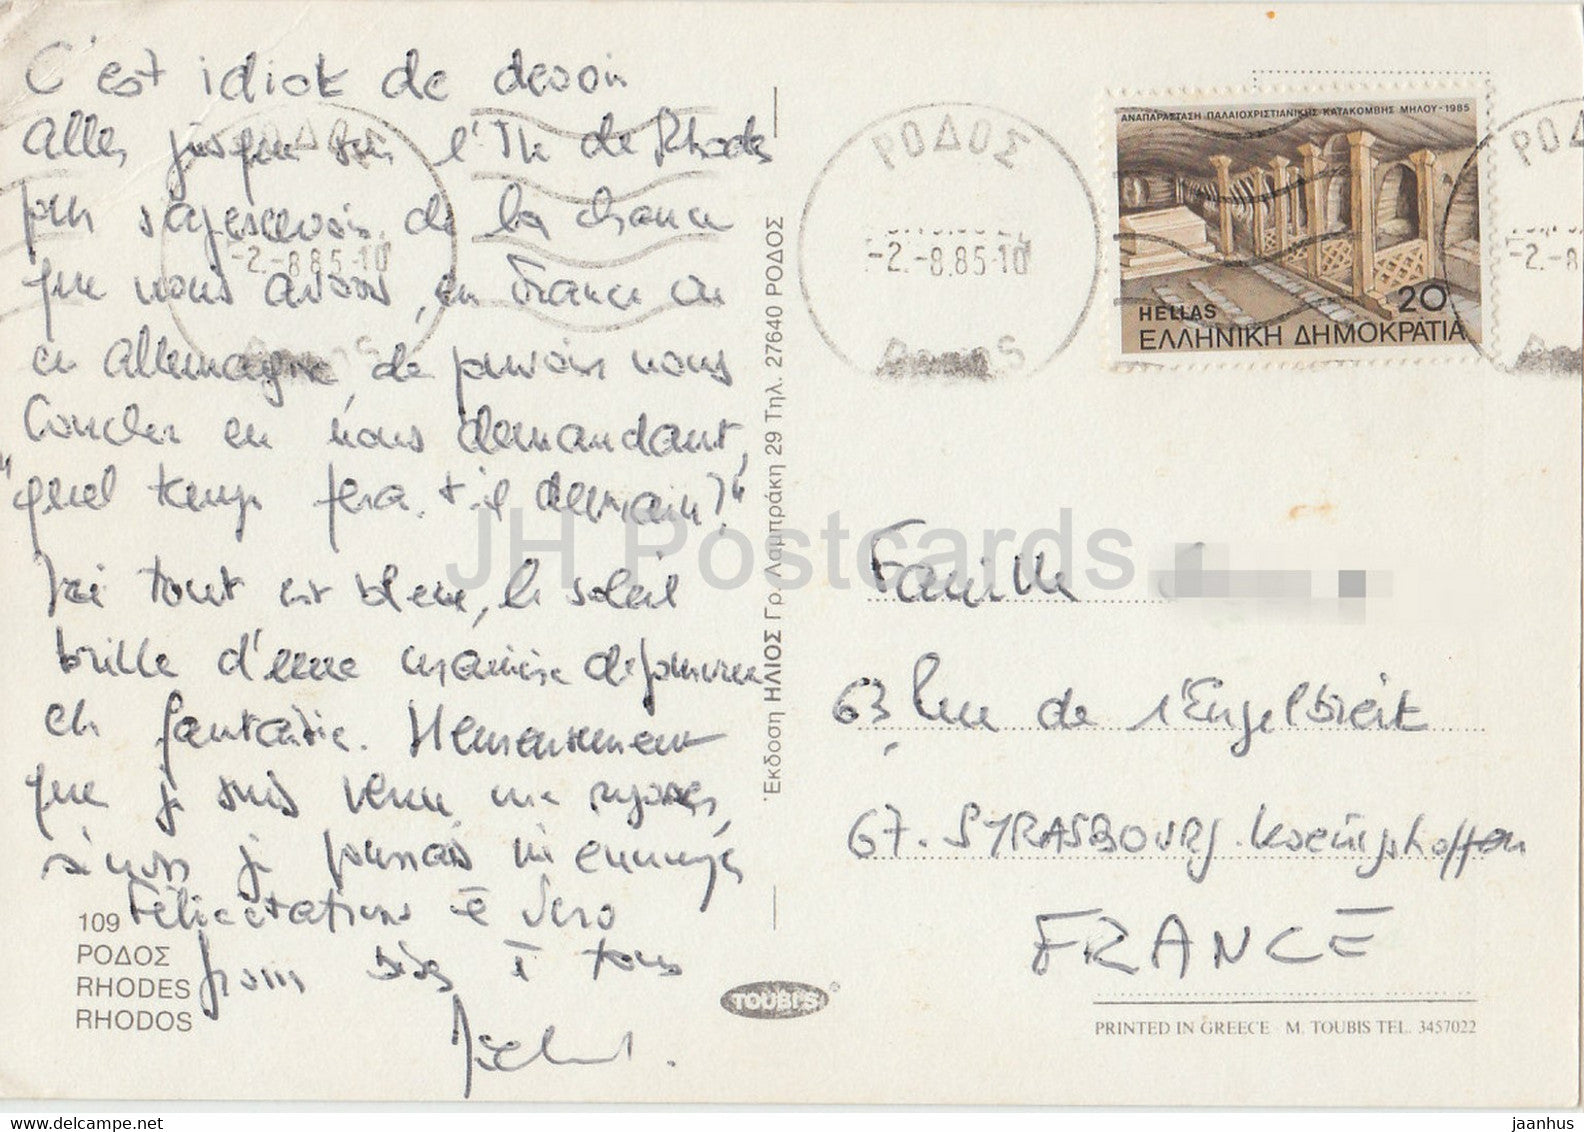 C'est idiot de devoir
aller jusque sur l'Ile de Rhodes
pour s'apercevoir de la chance
que nous avons, en France ou
en Allemagne, de pouvoir nous
coucher en nous demandant,
"quel temps fera-t-il demain?"
Ici tout est bleu, le soleil
brille d'une manière dépourvue
de fantaisie. Heureusement
que je suis venu me reposer,
sinon je pourrais m'ennuyer
Félicitations à Vero
gros bises à tous
Michel.
109
ΡΟΔΟΣ
RHODES
RHODOS
Έκδοση ΗΛΙΟΣ Γρ. Λαμπράκη 29 Τηλ. 27640 ΡΟΔΟΣ
TOUBI'S
ΡΟΔΟΣ
-2.-8.85-10
ΡΟΔΟΣ
-2.-8.85-10
ΑΝΑΠΑΡΑΣΤΑΣΗ ΠΑΛΑΙΟΧΡΙΣΤΙΑΝΙΚΗΣ ΚΑΤΑΚΟΜΒΗΣ ΜΗΛΟΥ-1985
20
HELLAS
ΕΛΛΗΝΙΚΗ ΔΗΜΟΚΡΑΤΙΑ
ΡΟΔ
-2.-8
Famille
63, Rue de l'Engelbreit
67. STRASBOURG. Koenigshoffen
FRANCE
PRINTED IN GREECE M. TOUBIS TEL. 3457022
JH Postcards
www.delcampe.net
jaanhus